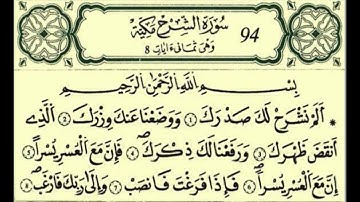 سُورَةُ الشَّرْحِ مَكِّيَّة 94
وَهِيَ ثَمَانِيَ ءَايَاتٍ 8
بِسْمِ اللَّهِ الرَّحْمَٰنِ الرَّحِيمِ
أَلَمْ نَشْرَحْ لَكَ صَدْرَكَ 1 وَوَضَعْنَا عَنكَ وِزْرَكَ 2 الَّذِي
أَنقَضَ ظَهْرَكَ 3 وَرَفَعْنَا لَكَ ذِكْرَكَ 4 فَإِنَّ مَعَ الْعُسْرِ يُسْراً 5
إِنَّ مَعَ الْعُسْرِ يُسْراً 6 فَإِذَا فَرَغْتَ فَانصَبْ 7 وَإِلَىٰ رَبِّكَ فَارْغَب 8